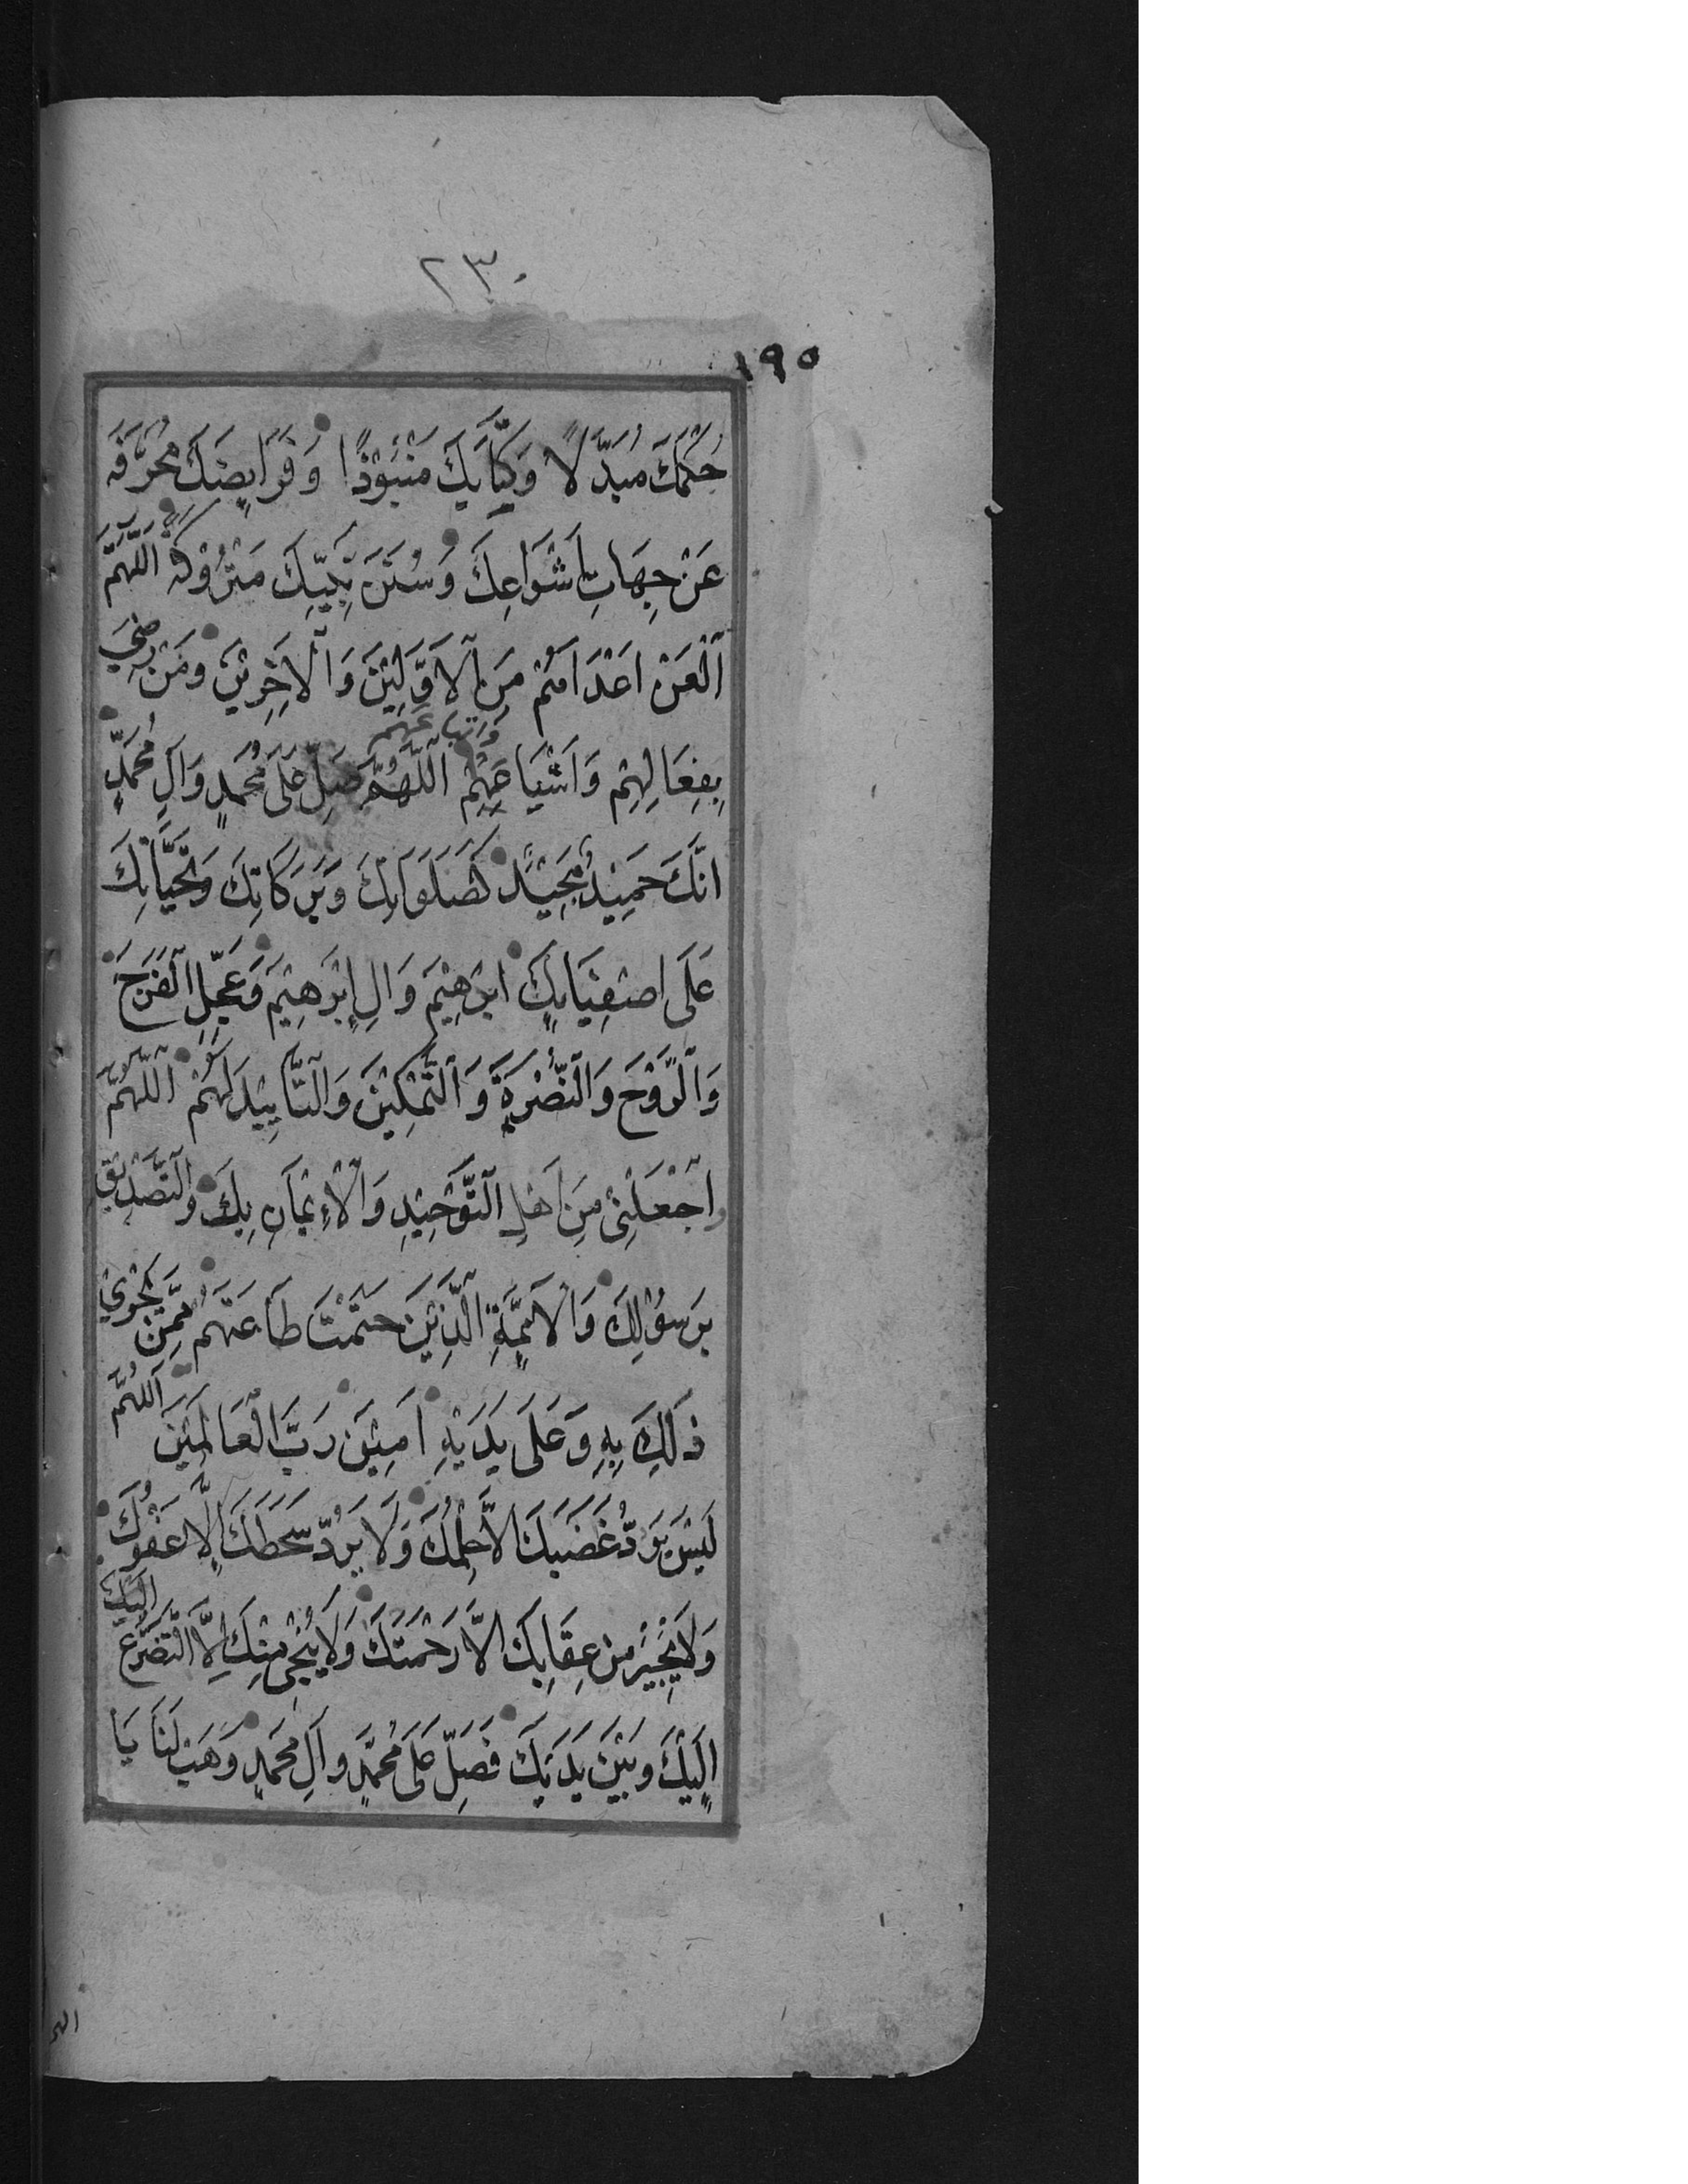 ٢٣٠
١٩٥
حُكْمَكَ مُبَدَّلًا وَكِتَابَكَ مَنْبُوْذًا وَفَرَايِضَكَ مُحَرَّفَةً
عَنْ جِهَاتِ اَشْوَاعِكَ وَسُنَنَ نَبِيِّكَ مَتْرُوْكَةً اَللّٰهُمَّ
اَلْعَنْ اَعْدَاءَهُمْ مِنَ الْاَوَّلِيْنَ وَالْاٰخِرِيْنَ وَمَنْ رَضِيَ
بِفِعَالِهِمْ وَاَشْيَاعِهِمْ وَاَتْبَاعَهُمْ اَللّٰهُمَّ صَلِّ عَلٰى مُحَمَّدٍ وَاٰلِ مُحَمَّدٍ
اِنَّكَ حَمِيْدٌ مَجِيْدٌ كَصَلَوَاتِكَ وَبَرَكَاتِكَ وَتَحِيَّاتِكَ
عَلٰى اَصْفِيَائِكَ اِبْرٰهِيْمَ وَاٰلِ اِبْرٰهِيْمَ وَعَجِّلِ الْفَرَجَ
وَالرَّوْحَ وَالنُّصْرَةَ وَالتَّمْكِيْنَ وَالتَّأْيِيْدَ لَهُمْ اَللّٰهُمَّ
وَاجْعَلْنِيْ مِنْ اَهْلِ التَّوْحِيْدِ وَالْاِيْمَانِ بِكَ وَالتَّصْدِيْقِ
بِرَسُوْلِكَ وَالْاَئِمَّةِ الَّذِيْنَ حَتَمْتَ طَاعَتَهُمْ مِمَّنْ يَجْرِيْ
ذٰلِكَ بِهِ وَعَلٰى يَدَيْهِ اٰمِيْنَ رَبَّ الْعَالَمِيْنَ اَللّٰهُمَّ
لَيْسَ يَرُدُّ غَضَبَكَ اِلَّا حِلْمُكَ وَلَا يَرُدُّ سَخَطَكَ اِلَّا عَفْوُكَ
وَلَا يُجِيْرُ مِنْ عِقَابِكَ اِلَّا رَحْمَتُكَ وَلَا يُنْجِيْ مِنْكَ اِلَّا التَّضَرُّعُ اِلَيْكَ
اِلَيْكَ وَبَيْنَ يَدَيْكَ فَصَلِّ عَلٰى مُحَمَّدٍ وَاٰلِ مُحَمَّدٍ وَهَبْ لَنَا يَا